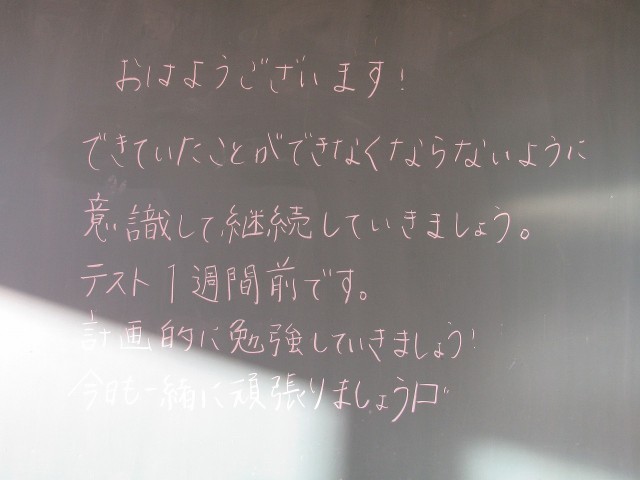 おはようございます!
できていたことができなくならないように
意識して継続していきましょう。
テスト1週間前です。
計画的に勉強していきましょう!
今日も一緒に頑張りましょう